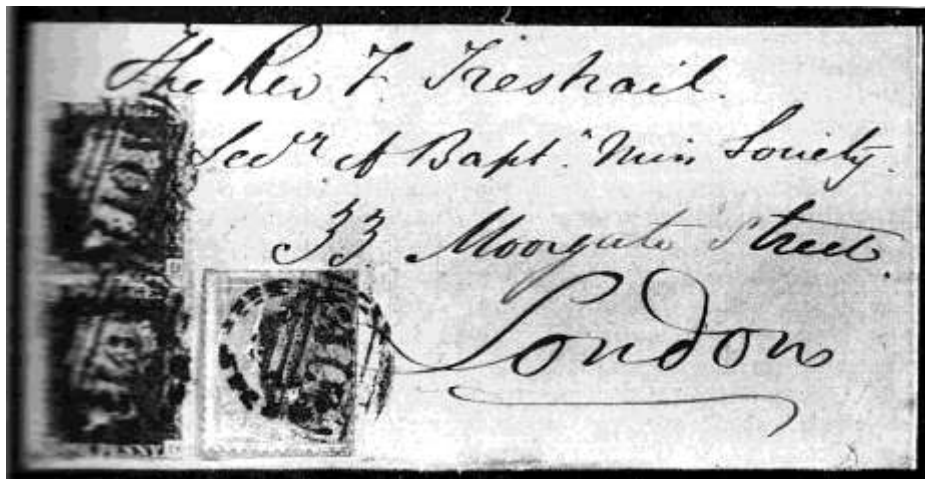 The Rev F. Treshail.
Secr. of Bapt. Miss Society.
33 Moorgate Street.
London
PENNY